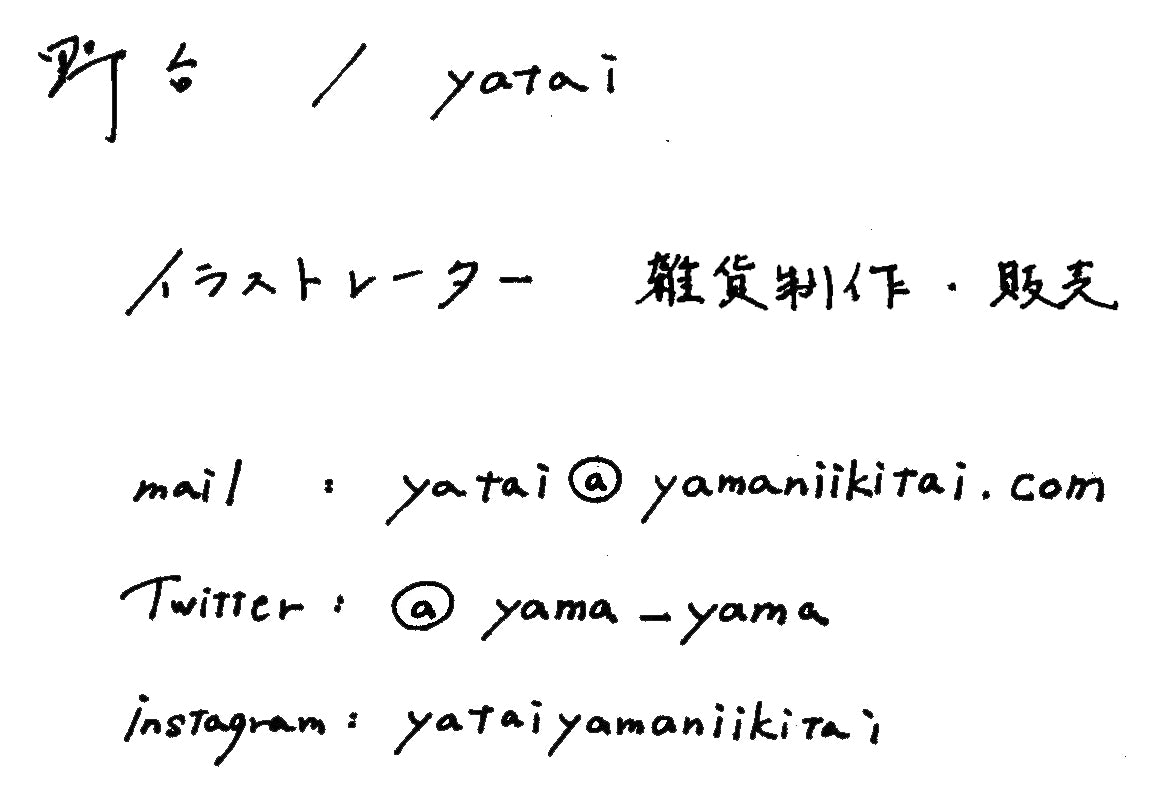 野台 / yatai
イラストレーター 雑貨制作・販売
mail : yatai@yamaniikitai.com
Twitter : @yama_yama
instagram : yataiyamaniikitai